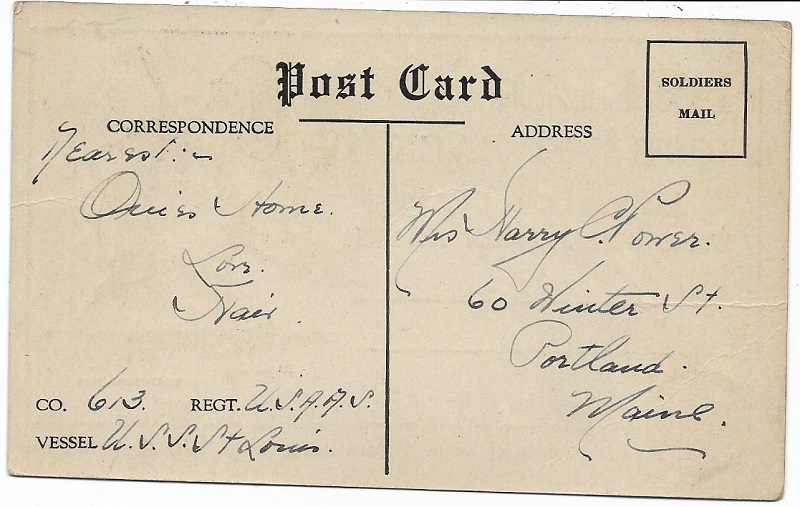 Post Card
SOLDIERS
MAIL
CORRESPONDENCE
Dearest:-
Home.
Love.
CO. 613. REGT. U.S.A.A.S.
VESSEL U.S.S. St Louis.
ADDRESS
Mrs Harry C. Power.
60 Winter St.
Portland.
Maine.